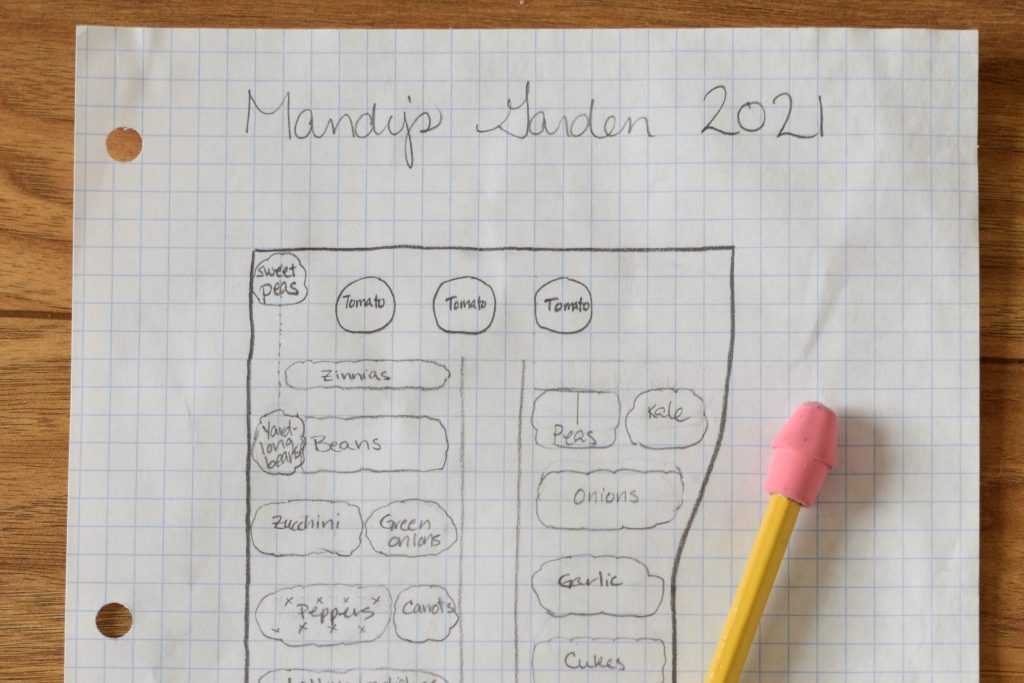 Mandy's Garden 2021
sweet
peas
Tomato
Tomato
Tomato
Zinnias
Yard-
long
beans
Beans
Peas
Kale
Onions
Zucchini
Green
onions
Garlic
Peppers
Carrots
Cukes